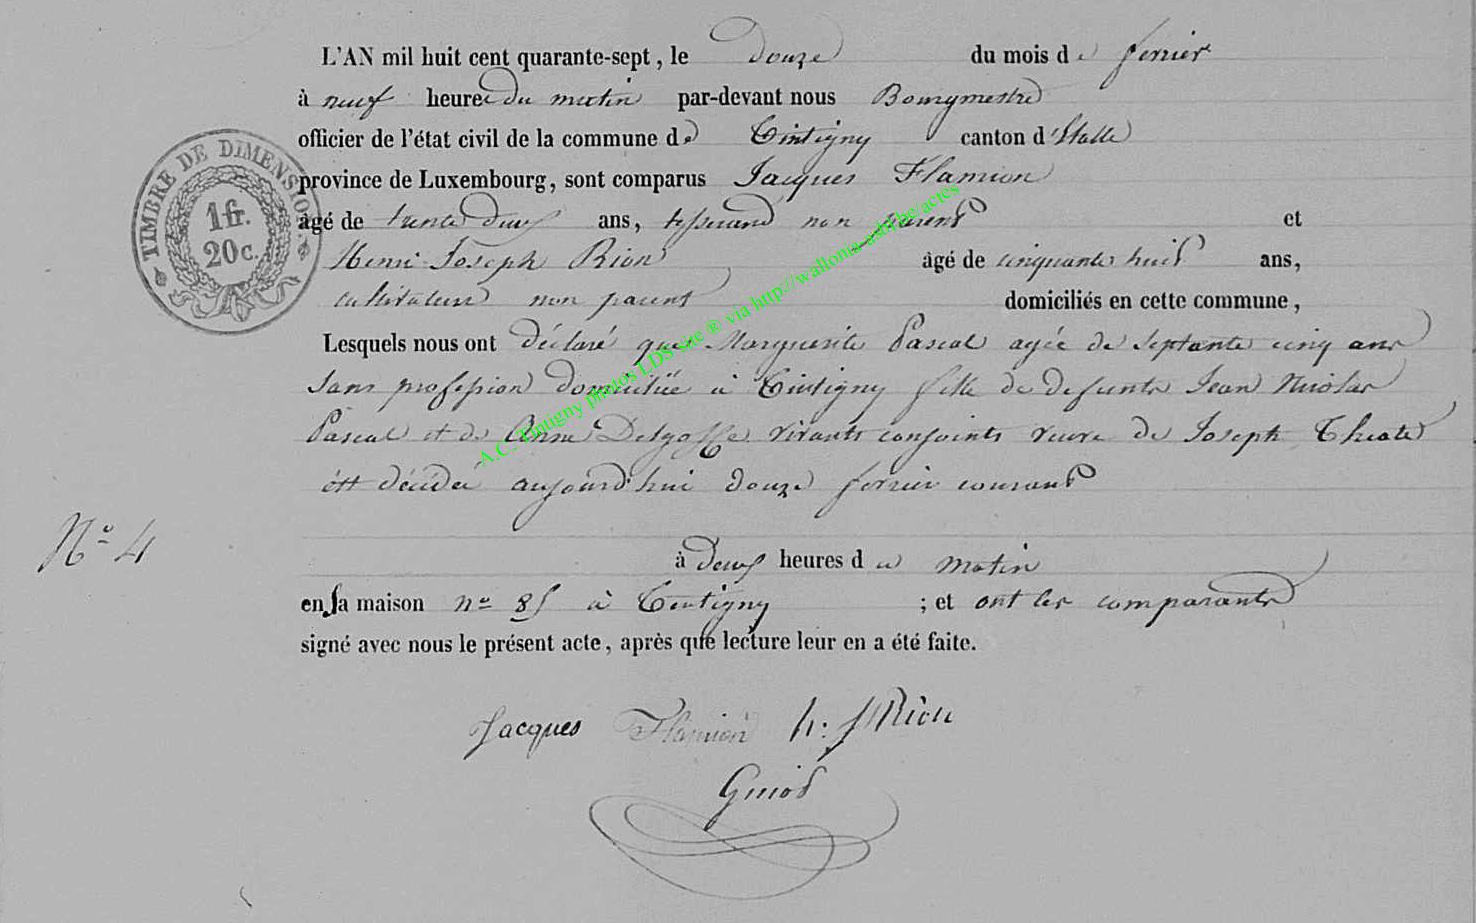 L'AN mil huit cent quarante-sept, le douze du mois de fevrier
à neuf heures du matin par-devant nous Bourgmestre
officier de l'état civil de la commune de Tintigny canton d'Etalle
province de Luxembourg, sont comparus Jacques Flamion
âgé de trente deux ans, tisserand non parent et
Henri Joseph Rion âgé de cinquante huit ans,
cultivateur non parent domiciliés en cette commune,
Lesquels nous ont déclaré que Marguerite Pascal agée de septante cinq ans
sans profession domiciliée à Tintigny fille de defunts Jean Nicolas
Pascal et de Anne vivants conjoints veuve de Joseph
est décédée aujourd'hui douze fevrier courant
N° 4
à deux heures du matin
en sa maison n° 85 à Tintigny ; et ont les comparants
signé avec nous le présent acte, après que lecture leur en a été faite.
Jacques Flamion h: J Rion
TIMBRE DE DIMENSION.
1 fr.
20 c.
A.C. Tintigny photos LDS-site ® via http://wallonia-asbl.be/actes